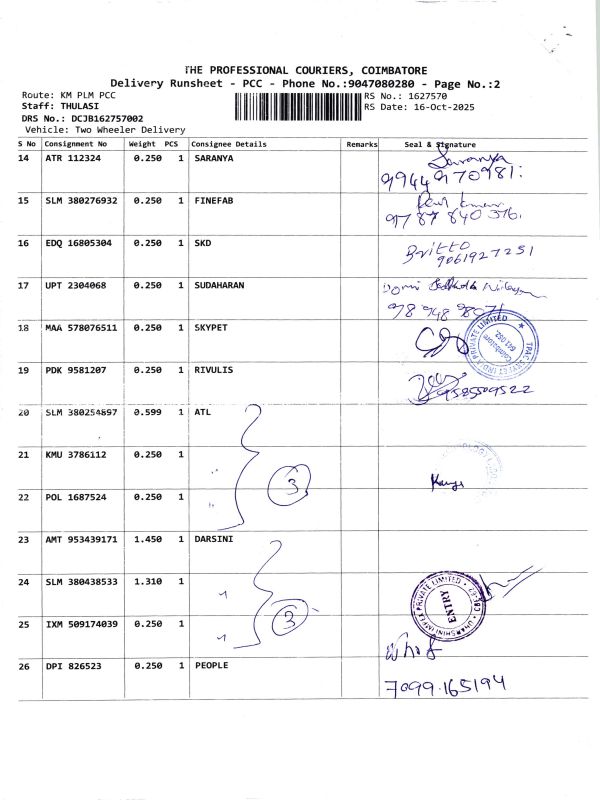 THE PROFESSIONAL COURIERS, COIMBATORE
Delivery Runsheet - PCC - Phone No.:9047080280 - Page No.:2
Route: KM PLM PCC
RS No.: 1627570
Staff: THULASI
RS Date: 16-Oct-2025
DRS No.: DCJB162757002
Vehicle: Two Wheeler Delivery
S No Consignment No Weight PCS Consignee Details Remarks Seal & Signature
14 ATR 112324 0.250 1 SARANYA Saranya
9944970981
15 SLM 380276932 0.250 1 FINEFAB
9787 840 376
16 EDQ 16805304 0.250 1 SKD Britto
9061927251
17 UPT 2304068 0.250 1 SUDAHARAN
18 MAA 578076511 0.250 1 SKYPET
19 PDK 9581207 0.250 1 RIVULIS
9585509522
20 SLM 380254897 0.599 1 ATL
21 KMU 3786112 0.250 1
3
22 POL 1687524 0.250 1
23 AMT 953439171 1.450 1 DARSINI
24 SLM 380438533 1.310 1
ENTRY
25 IXM 509174039 0.250 1
3
26 DPI 826523 0.250 1 PEOPLE
7099165194